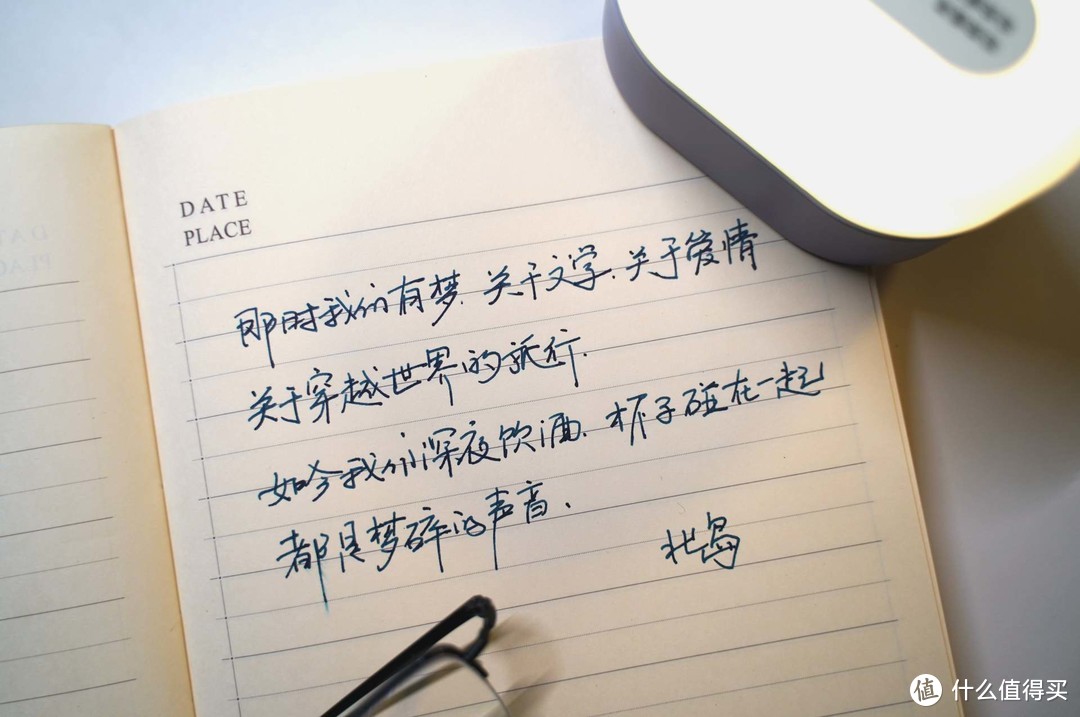 DATE
PLACE
那时我们有梦.关于文学.关于爱情
关于穿越世界的旅行.
如今我们深夜饮酒.杯子碰在一起
都是梦碎的声音.
北岛
值 什么值得买